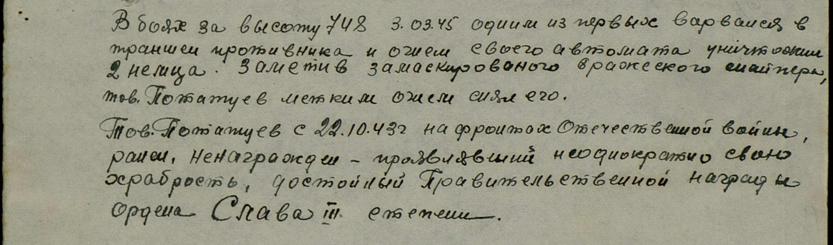 В боях за высоту 748 3.03.45 одним из первых варвался в
траншеи противника и огнем своего автомата уничтожил
2 немца. Заметив замаскированого вражеского снайпера,
тов. Потатуев метким огнем снял его.
Тов. Потатуев с 22.10.43г на фронтах Отечественной войны,
ранен, ненагражден – проявлявший неоднократно свою
храбрость, достойный Правительственной награды
Ордена Слава III степени.